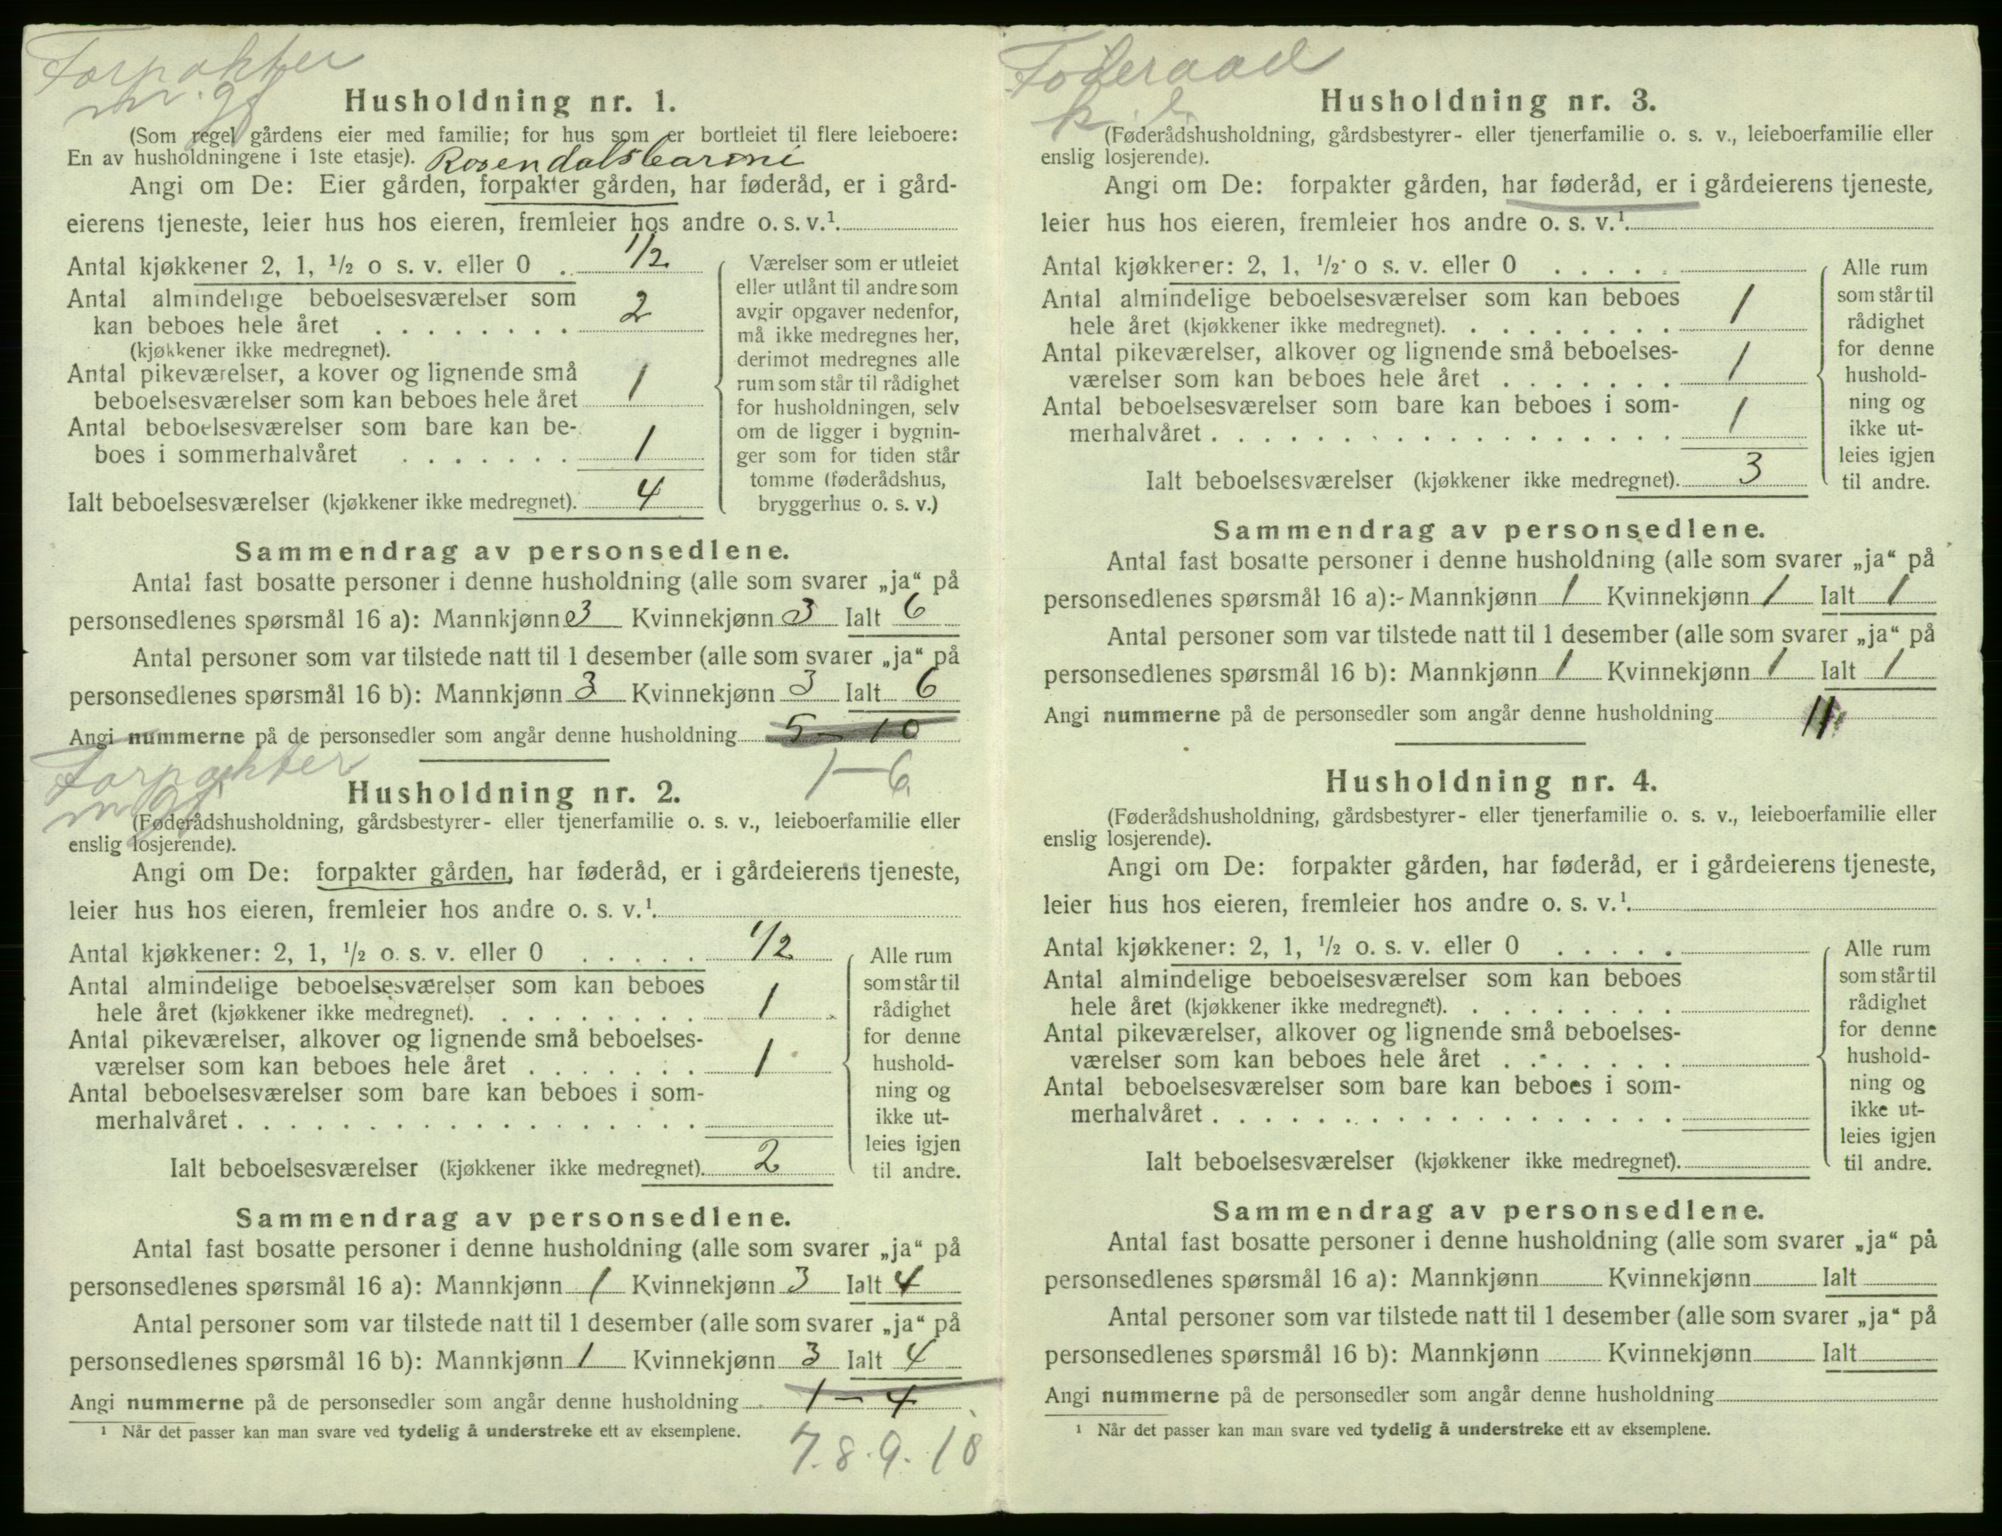 Forpakter
m. gf
Husholdning nr. 1.
(Som regel gårdens eier med familie; for hus som er bortleiet til flere leieboere:
En av husholdningene i 1ste etasje). Rosendalsbaroni
Angi om De: Eier gården, forpakter gården, har føderåd, er i gård-
eierens tjeneste, leier hus hos eieren, fremleier hos andre o. s. v.¹
Antal kjøkkener 2, 1, ½ o s. v. eller 0 . 1/2
Antal almindelige beboelsesværelser som
kan beboes hele året . . . . . . . . 2
(kjøkkener ikke medregnet).
Antal pikeværelser, a kover og lignende små
beboelsesværelser som kan beboes hele året 1
Antal beboelsesværelser som bare kan be-
boes i sommerhalvåret . . . . . . . 1
Ialt beboelsesværelser (kjøkkener ikke medregnet). 4
Værelser som er utleiet
eller utlånt til andre som
avgir opgaver nedenfor,
må ikke medregnes her,
derimot medregnes alle
rum som står til rådighet
for husholdningen, selv
om de ligger i bygnin-
ger som for tiden står
tomme (føderådshus,
bryggerhus o. s. v.)
Sammendrag av personsedlene.
Antal fast bosatte personer i denne husholdning (alle som svarer „ja“ på
personsedlenes spørsmål 16 a): Mannkjønn 3 Kvinnekjønn 3 Ialt 6
Antal personer som var tilstede natt til 1 desember (alle som svarer „ja“ på
personsedlenes spørsmål 16 b): Mannkjønn 3 Kvinnekjønn 3 Ialt 6
Angi nummerne på de personsedler som angår denne husholdning 5 - 10
1-6
Forpakter
m gf
Husholdning nr. 2.
(Føderådshusholdning, gårdsbestyrer- eller tjenerfamilie o. s. v., leieboerfamilie eller
enslig losjerende).
Angi om De: forpakter gården, har føderåd, er i gårdeierens tjeneste,
leier hus hos eieren, fremleier hos andre o. s. v.¹
Antal kjøkkener: 2, 1, ½ o. s. v. eller 0 . . . . . 1/2
Antal almindelige beboelsesværelser som kan beboes
hele året (kjøkkener ikke medregnet). . . . . . . . . 1
Antal pikeværelser, alkover og lignende små beboelses-
værelser som kan beboes hele året . . . . . . . 1
Antal beboelsesværelser som bare kan beboes i som-
merhalvåret . . . . . . . . . . . . . . . . . .
Ialt beboelsesværelser (kjøkkener ikke medregnet). 2
Alle rum
som står til
rådighet
for denne
hushold-
ning og
ikke ut-
leies igjen
til andre.
Sammendrag av personsedlene.
Antal fast bosatte personer i denne husholdning (alle som svarer „ja“ på
personsedlenes spørsmål 16 a): Mannkjønn 1 Kvinnekjønn 3 Ialt 4
Antal personer som var tilstede natt til 1 desember (alle som svarer „ja“ på
personsedlenes spørsmål 16 b): Mannkjønn 1 Kvinnekjønn 3 Ialt 4
Angi nummerne på de personsedler som angår denne husholdning 1 - 4
¹ Når det passer kan man svare ved tydelig å understreke ett av eksemplene.
7. 8. 9. 10
Føderaad
Husholdning nr. 3.
(Føderådshusholdning, gårdsbestyrer- eller tjenerfamilie o. s. v., leieboerfamilie eller
enslig losjerende).
Angi om De: forpakter gården, har føderåd, er i gårdeierens tjeneste,
leier hus hos eieren, fremleier hos andre o. s. v.¹
Antal kjøkkener: 2, 1, ½ o s. v. eller 0 . . . . .
Antal almindelige beboelsesværelser som kan beboes
hele året (kjøkkener ikke medregnet). . . . . . . . . 1
Antal pikeværelser, alkover og lignende små beboelses-
værelser som kan beboes hele året . . . . . . . 1
Antal beboelsesværelser som bare kan beboes i som-
merhalvåret . . . . . . . . . . . . . . . . . . 1
Ialt beboelsesværelser (kjøkkener ikke medregnet). 3
Alle rum
som står til
rådighet
for denne
hushold-
ning og
ikke ut-
leies igjen
til andre.
Sammendrag av personsedlene.
Antal fast bosatte personer i denne husholdning (alle som svarer „ja“ på
personsedlenes spørsmål 16 a): Mannkjønn 1 Kvinnekjønn 1 Ialt 1
Antal personer som var tilstede natt til 1 desember (alle som svarer „ja“ på
personsedlenes spørsmål 16 b): Mannkjønn 1 Kvinnekjønn 1 Ialt 1
Angi nummerne på de personsedler som angår denne husholdning 11
Husholdning nr. 4.
(Føderådshusholdning, gårdsbestyrer- eller tjenerfamilie o. s. v., leieboerfamilie eller
enslig losjerende).
Angi om De: forpakter gården, har føderåd, er i gårdeierens tjeneste,
leier hus hos eieren, fremleier hos andre o. s. v.¹
Antal kjøkkener: 2, 1, ½ o. s. v. eller 0 . . . . .
Antal almindelige beboelsesværelser som kan beboes
hele året (kjøkkener ikke medregnet). . . . . . . . .
Antal pikeværelser, alkover og lignende små beboelses-
værelser som kan beboes hele året . . . . . . .
Antal beboelsesværelser som bare kan beboes i som-
merhalvåret . . . . . . . . . . . . . . . . . .
Ialt beboelsesværelser (kjøkkener ikke medregnet).
Alle rum
som står til
rådighet
for denne
hushold-
ning og
ikke ut-
leies igjen
til andre.
Sammendrag av personsedlene.
Antal fast bosatte personer i denne husholdning (alle som svarer „ja“ på
personsedlenes spørsmål 16 a): Mannkjønn Kvinnekjønn Ialt
Antal personer som var tilstede natt til 1 desember (alle som svarer „ja“ på
personsedlenes spørsmål 16 b): Mannkjønn Kvinnekjønn Ialt
Angi nummerne på de personsedler som angår denne husholdning
¹ Når det passer kan man svare ved tydelig å understreke ett av eksemplene.